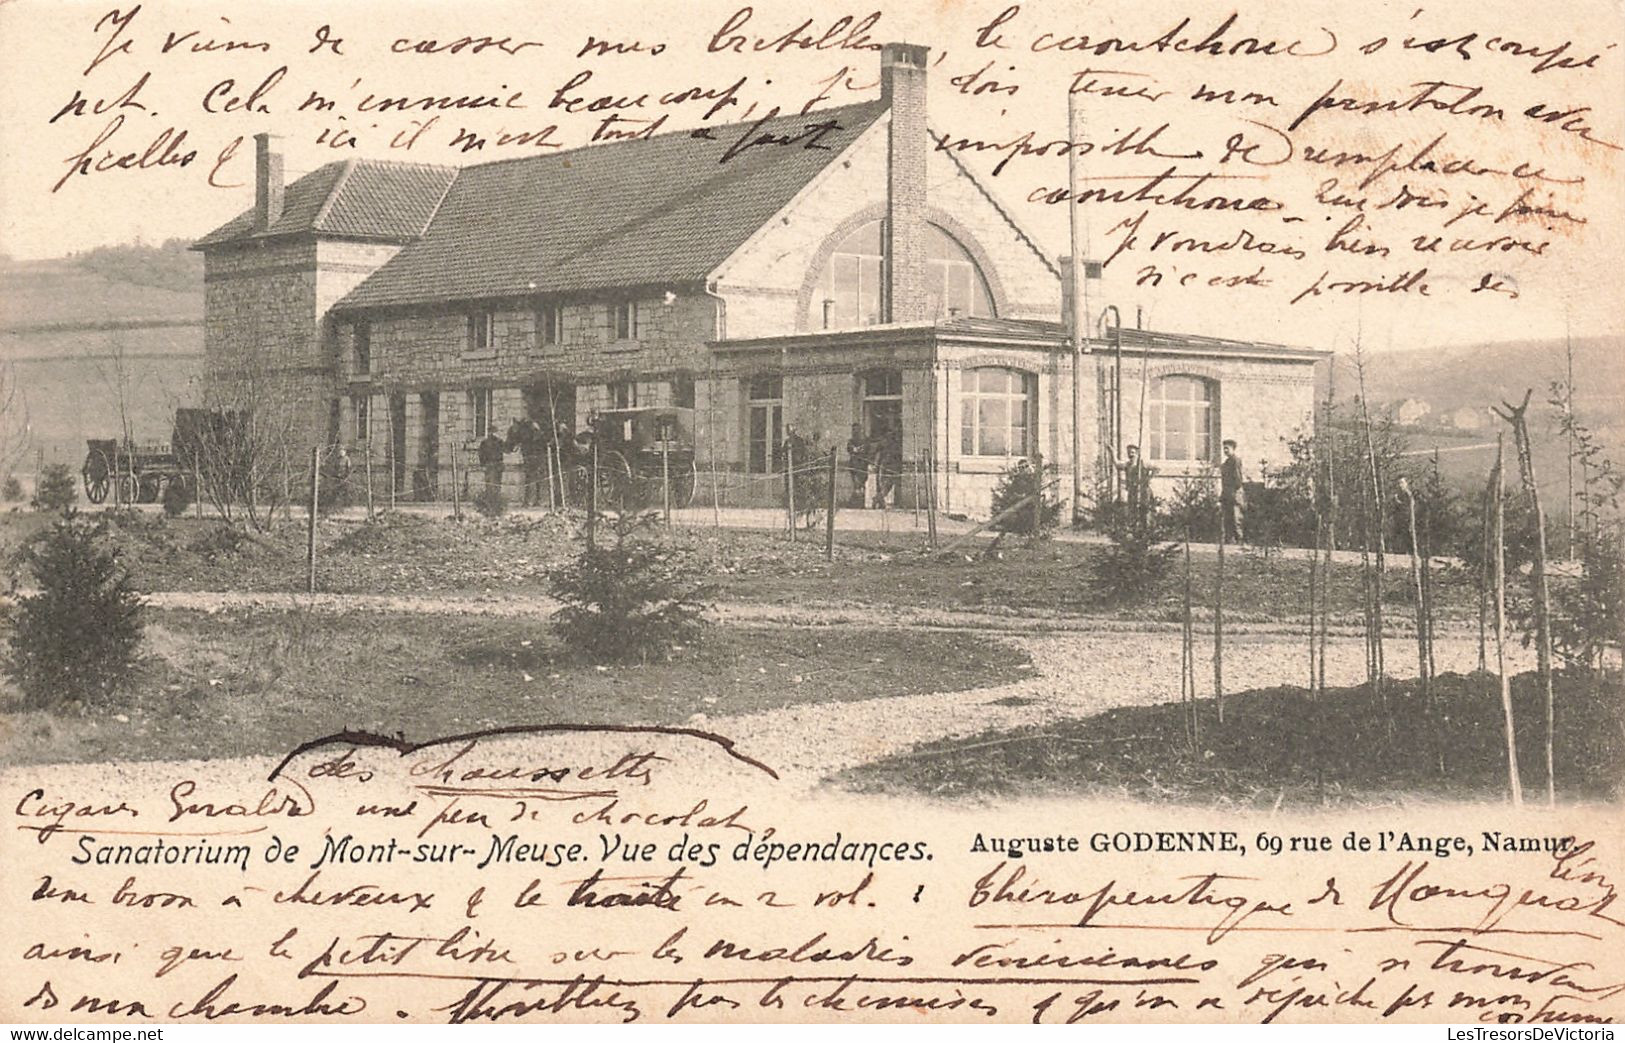 Je viens de casser mes bretelles, le caoutchouc s'est coupé
net. Cela m'ennuie beaucoup, je dois tenir mon pantalon avec
ficelles & ici il n'est tout à fait impossible de remplacer ce
caoutchouc. Que dois je faire
Je voudrais bien recevoir
si c'est possible des
des chaussettes
Cigares Giralda, une peu de chocolat
Sanatorium de Mont-sur-Meuse. Vue des dépendances. Auguste GODENNE, 69 rue de l'Ange, Namur.
une bross à cheveux & le traité en 2 vol. : thérapeutique de Manquat
ainsi que le petit livre sur les maladies vénériennes qui se trouvent
ds ma chambre. N'oubliez pas les chemises & qu'on se dépêche pr mon
costume
LesTresorsDeVictoria